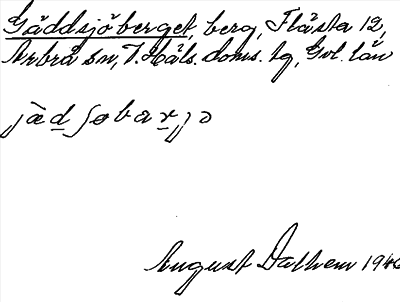 Gäddsjöberget, berg, Flästa 12,
Arbrå sn, V. Häls. doms. tg, Gvl. län
jädʃøbarjə
August Dalhem 1946